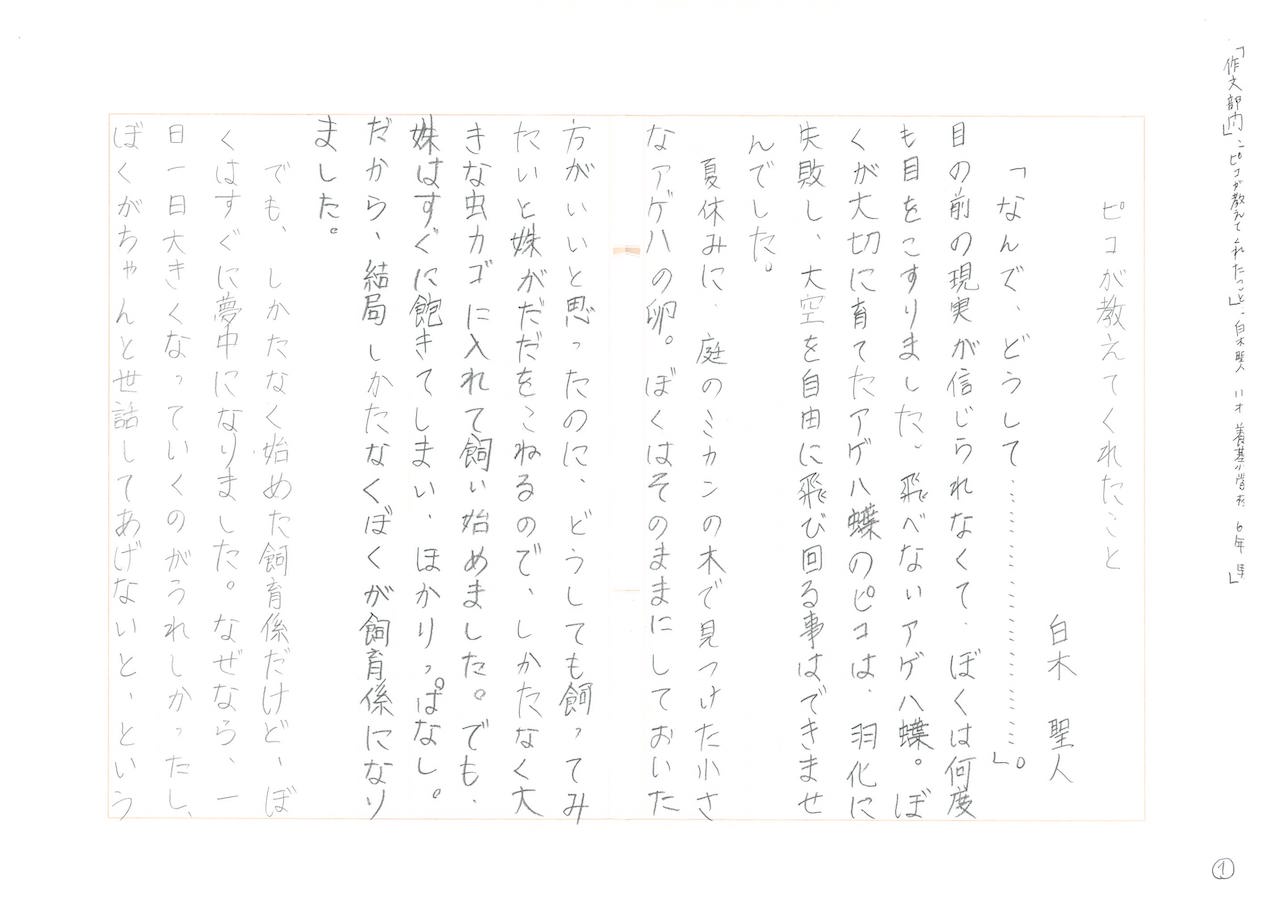 「作文部門」、「ピコが教えてくれたこと」、白木聖人 11才 養基小学校 6年生」
ピコが教えてくれたこと
白木 聖人
「なんで、どうして……………………」。
目の前の現実が信じられなくて、ぼくは何度
も目をこすりました。飛べないアゲハ蝶。ぼ
くが大切に育てたアゲハ蝶のピコは、羽化に
失敗し、大空を自由に飛び回る事はできませ
んでした。
夏休みに、庭のミカンの木で見つけた小さ
なアゲハの卵。ぼくはそのままにしておいた
方がいいと思ったのに、どうしても飼ってみ
たいと妹がだだをこねるので、しかたなく大
きな虫カゴに入れて飼い始めました。でも、
妹はすぐに飽きてしまい、ほかりっぱなし。
だから、結局しかたなくぼくが飼育係になり
ました。
でも、しかたなく始めた飼育係だけど、ぼ
くはすぐに夢中になりました。なぜなら、一
日一日大きくなっていくのがうれしかったし、
ぼくがちゃんと世話してあげないと、という
①